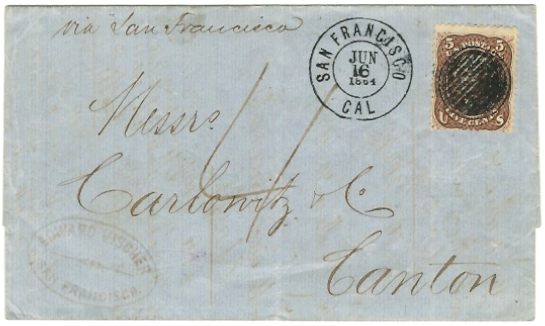 via San Francisco
SAN FRANCISCO
JUN
16
1864
CAL
5 POSTAGE 5
U FIVE CENTS S
Messrs
Carlowitz & Co
Canton
EDWARD VISCHER
SAN FRANCISCO.